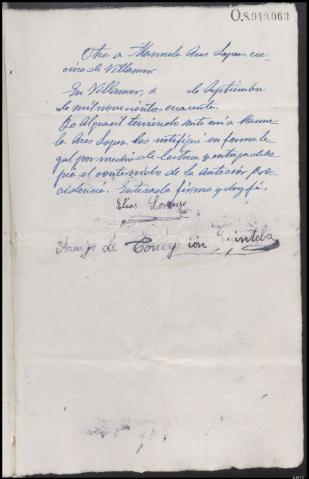 O.8.919.063
Otra a Manuela Ares Lopez ve-
cina de Villamor.
En Villamor, a de Septiembre
de mil novecientos cuarenta.
Yo Alguacil teniendo ante mi a Manue-
la Ares Lopez les notifiqué en forma le-
gal por medio de lectura y entrega de co-
pia el contenido de la anterior pro-
videncia. Enterada firma y doy fé.
Elías Lorenzo
de Concepción Quintela